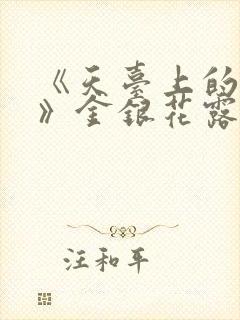 《天臺上的
》金銀花露
汪和平